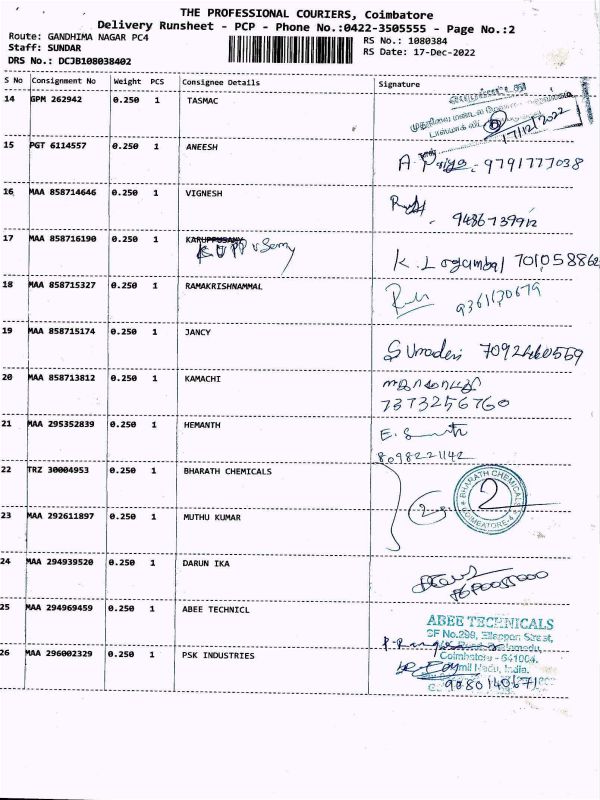 THE PROFESSIONAL COURIERS, Coimbatore
Delivery Runsheet - PCP - Phone No.:0422-3505555 - Page No.:2
Route: GANDHIMA NAGAR PC4
RS No.: 1080384
Staff: SUNDAR
RS Date: 17-Dec-2022
DRS No.: DCJB108038402
S No Consignment No Weight PCS Consignee Details Signature
14 GPM 262942 0.250 1 TASMAC
17/12/2022
15 PGT 6114557 0.250 1 ANEESH
A. Priya - 9791777038
16 MAA 858714646 0.250 1 VIGNESH
9486739912
17 MAA 858716190 0.250 1 KARUPPUSAMY
K. Logambal
18 MAA 858715327 0.250 1 RAMAKRISHNAMMAL
9361130679
19 MAA 858715174 0.250 1 JANCY
7092460569
20 MAA 858713812 0.250 1 KAMACHI
7373256760
21 MAA 295352839 0.250 1 HEMANTH
8098221142
22 TRZ 30004953 0.250 1 BHARATH CHEMICALS
BHARATH CHEMICALS
COIMBATORE-4
2
23 MAA 292611897 0.250 1 MUTHU KUMAR
24 MAA 294939520 0.250 1 DARUN IKA
25 MAA 294969459 0.250 1 ABEE TECHNICL
ABEE TECHNICALS
Coimbatore - 641004.
Tamil Nadu, India.
26 MAA 296002329 0.250 1 PSK INDUSTRIES
9080140671